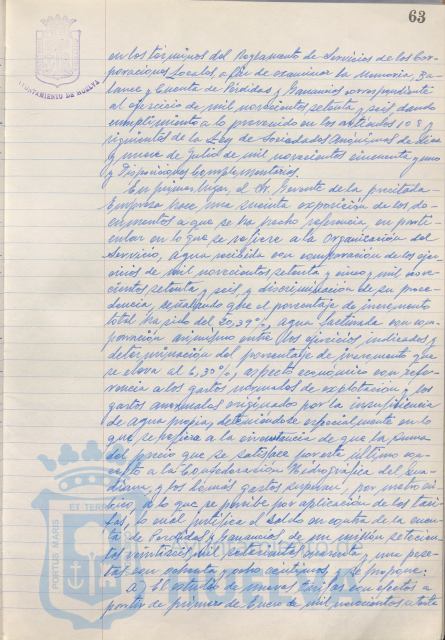 63
AYUNTAMIENTO DE HUELVA
en los términos del Reglamento de Servicios de las Cor-
poraciones Locales, a fin de examinar la Memoria, Ba-
lance y Cuenta de Pérdidas y Ganancias correspondiente
al ejercicio de mil novecientos setenta y seis, dando
cumplimiento a lo prevenido en los artículos 108 y
siguientes de la Ley de Sociedades Anónimas de diez
y nueve de Julio de mil novecientos cincuenta y uno
y Disposiciones Complementarias.
En primer lugar, el Sr. Gerente de la precitada
Empresa hace una sucinta exposición de los do-
cumentos a que se ha hecho referencia, en parti-
cular en lo que se refiere a la Organización del
Servicio, agua recibida con comparación de los ejer-
cicios de mil novecientos setenta y cinco y mil nove-
cientos setenta y seis y discriminación de su proce-
dencia, señalando que el porcentaje de incremento
total ha sido del 20,39%, agua facturada con com-
paración asimismo entre los ejercicios indicados y
determinación del porcentaje de incremento que
se eleva al 6,30%, aspecto económico con refe-
rencia a los gastos normales de explotación y los
gastos anormales originados por la insuficiencia
de agua propia, deteniéndose especialmente en lo
que se refiere a la circunstancia de que la suma
del precio que se satisface por este último con-
cepto a la Confederación Hidrográfica del Gua-
diana, y los demás gastos superan, por metro cú-
bico, a lo que se percibe por aplicación de las tari-
fas, lo cual justifica el saldo en contra de la cuen-
ta de Pérdidas y Ganancias, de un millón setecien-
tas veintiseis mil setecientas cuarenta y una pese-
tas con ochenta y ocho céntimos, y se propone:
a) El estudio de nuevas tarifas con efectos a
partir de primero de Enero de mil novecientos setenta
EX TERRAE
PORTUS MARIS
HUELVA